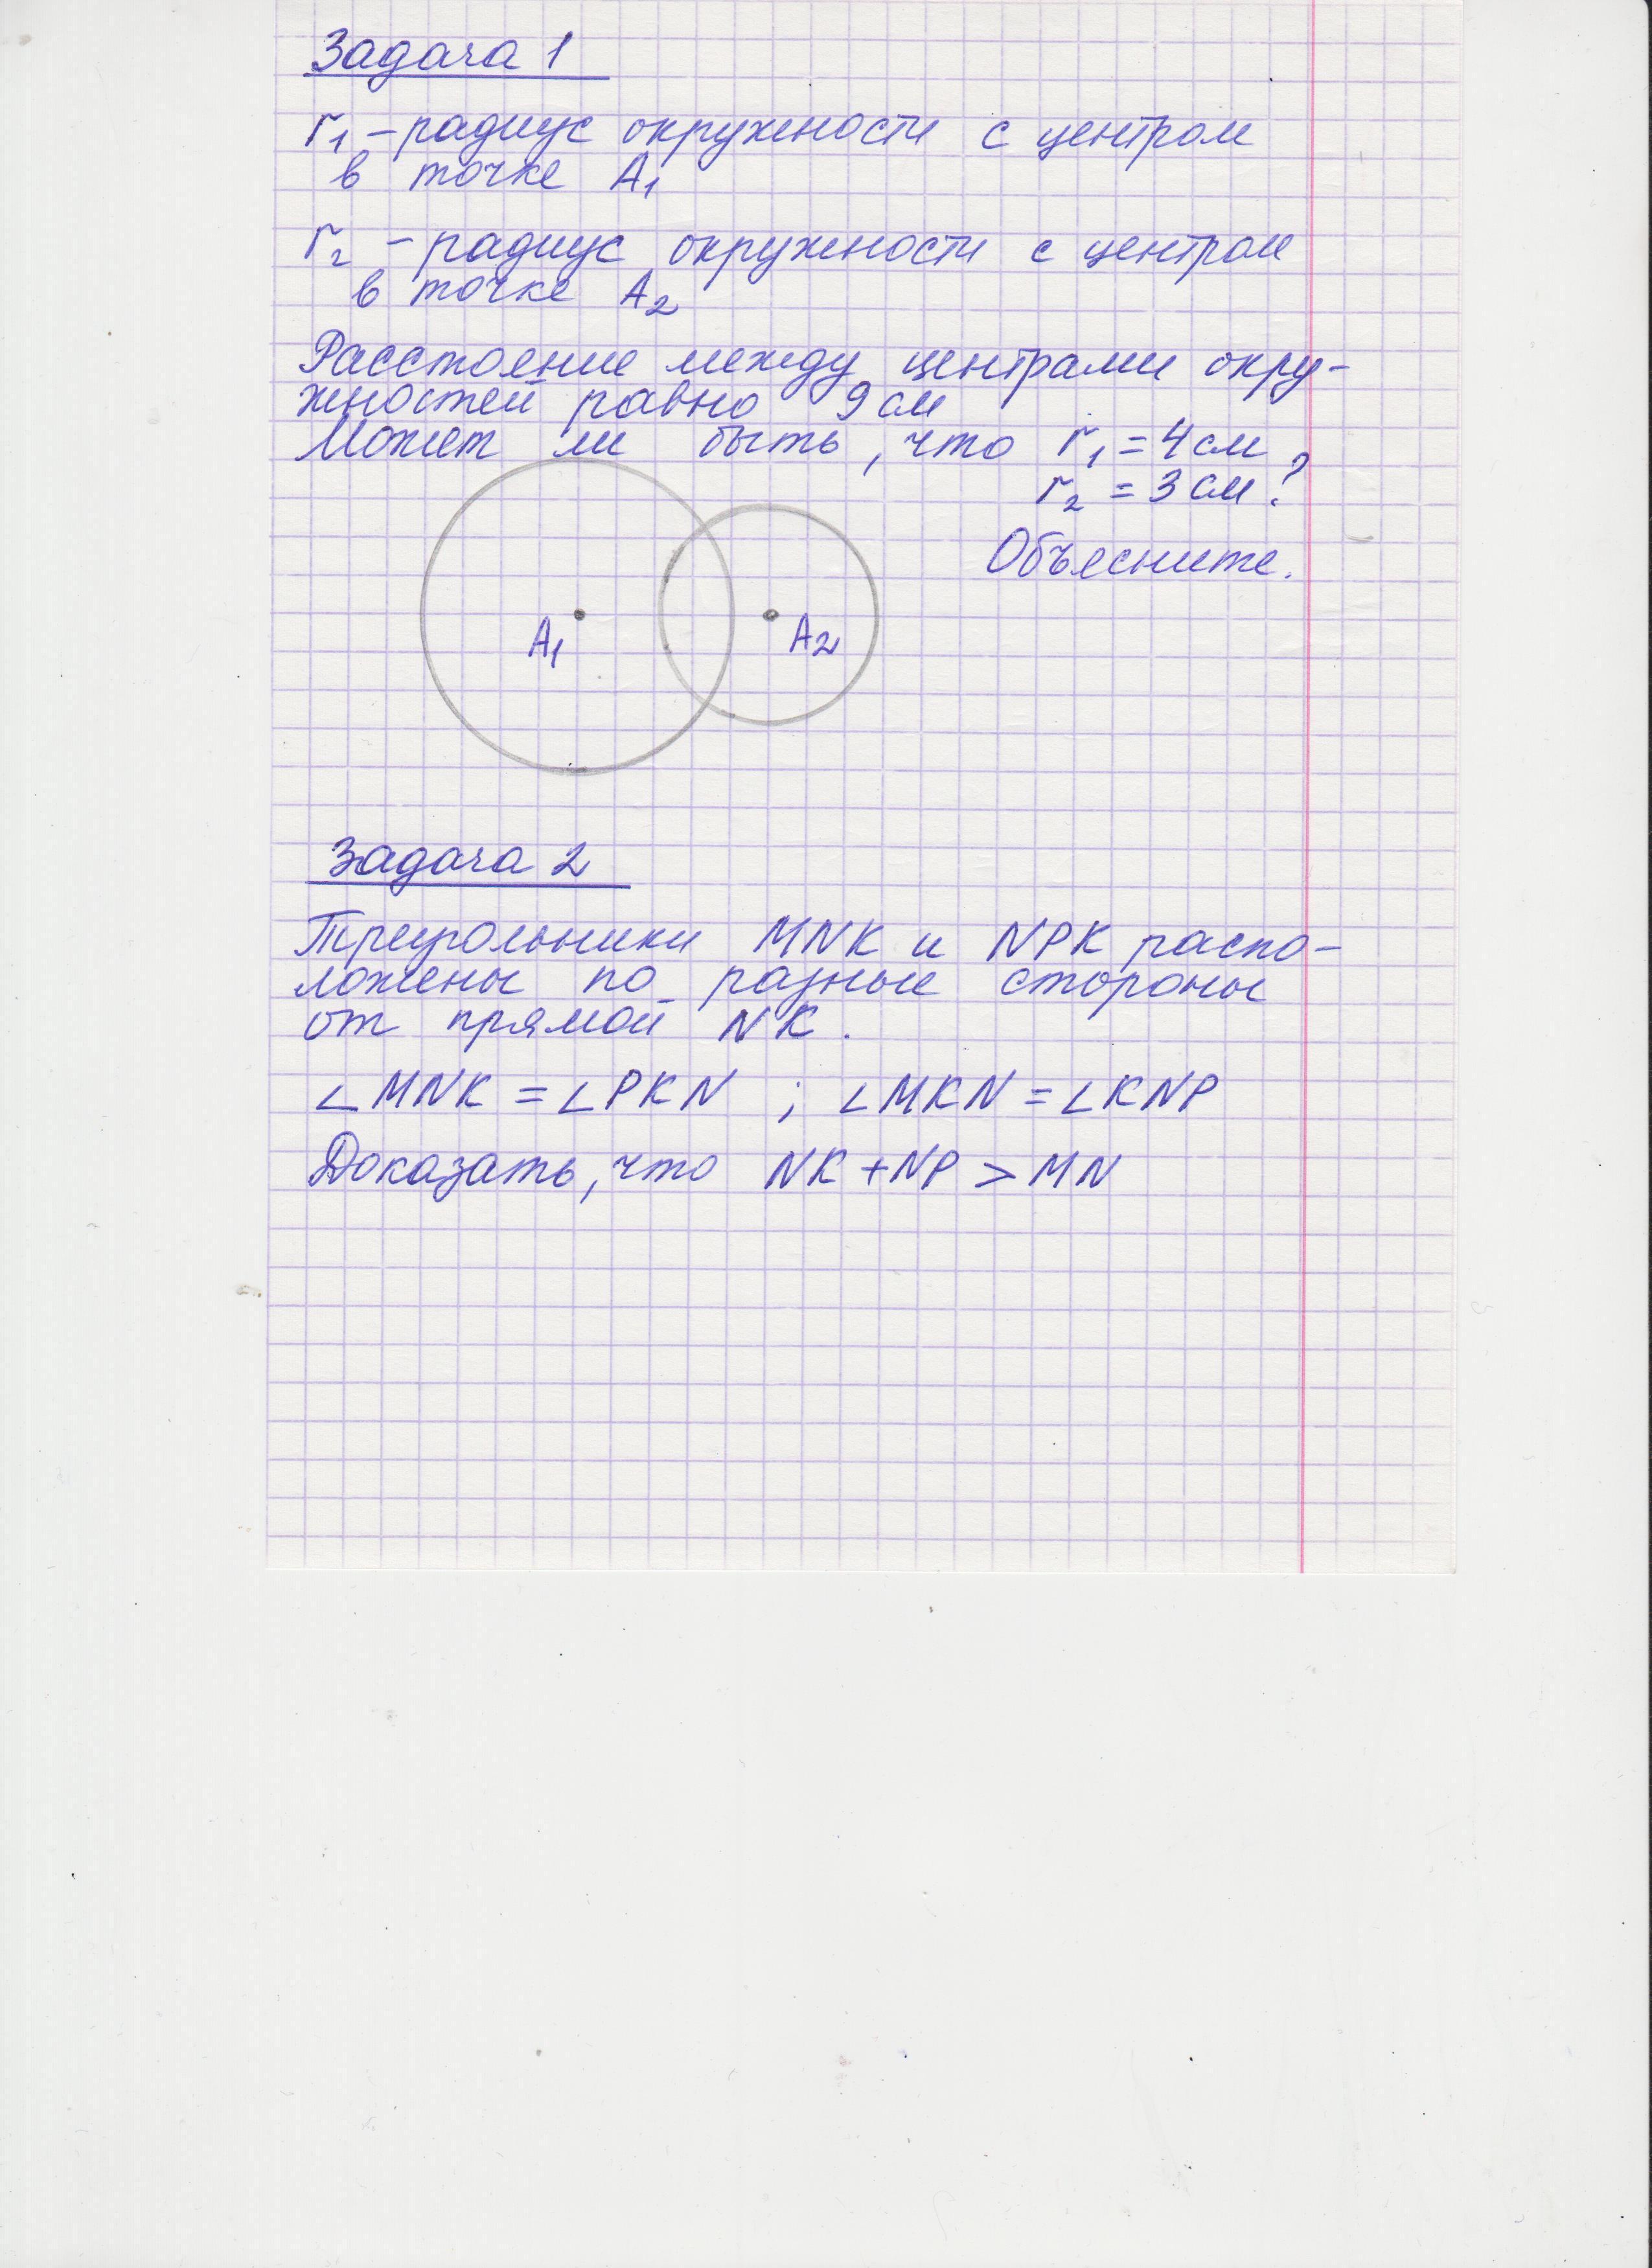 Задача 1
r₁ – радиус окружности с центром
в точке A₁
r₂ – радиус окружности с центром
в точке A₂
Расстояние между центрами окру-
жностей равно 9 см
Может ли быть, что r₁ = 4 см,
r₂ = 3 см?
Объясните.
A₁ A₂
Задача 2
Треугольники MNK и NPK распо-
ложены по разные стороны
от прямой NK.
∠MNK = ∠PKN ; ∠MKN = ∠KNP
Доказать, что NK + NP > MN